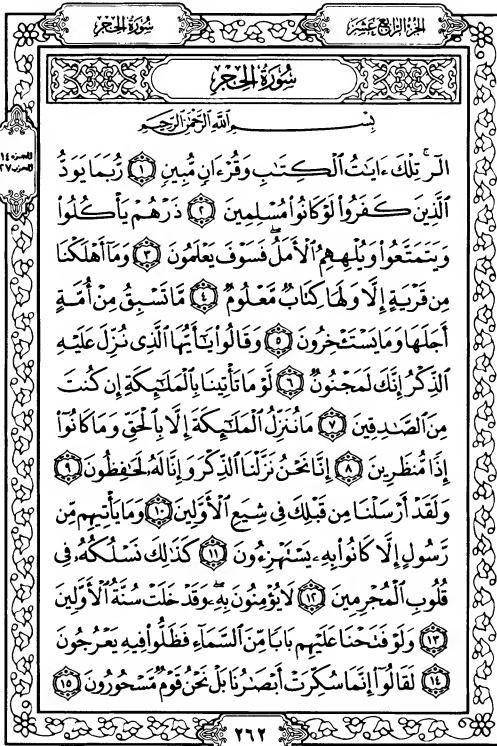 الجزء الرابع عشر
سورة الحجر
سُورَةُ الحِجْرِ
بِسْمِ ٱللَّهِ ٱلرَّحْمَٰنِ ٱلرَّحِيمِ
الجزء ١٤
الحزب ٢٧
الٓر ۚ تِلْكَ ءَايَٰتُ ٱلْكِتَٰبِ وَقُرْءَانٍ مُّبِينٍ ١ رُّبَمَا يَوَدُّ
ٱلَّذِينَ كَفَرُوا۟ لَوْ كَانُوا۟ مُسْلِمِينَ ٢ ذَرْهُمْ يَأْكُلُوا۟
وَيَتَمَتَّعُوا۟ وَيُلْهِهِمُ ٱلْأَمَلُ ۖ فَسَوْفَ يَعْلَمُونَ ٣ وَمَآ أَهْلَكْنَا
مِن قَرْيَةٍ إِلَّا وَلَهَا كِتَابٌ مَّعْلُومٌ ٤ مَّا تَسْبِقُ مِنْ أُمَّةٍ
أَجَلَهَا وَمَا يَسْتَـْٔخِرُونَ ٥ وَقَالُوا۟ يَٰٓأَيُّهَا ٱلَّذِى نُزِّلَ عَلَيْهِ
ٱلذِّكْرُ إِنَّكَ لَمَجْنُونٌ ٦ لَّوْ مَا تَأْتِينَا بِٱلْمَلَٰٓئِكَةِ إِن كُنتَ
مِنَ ٱلصَّٰدِقِينَ ٧ مَا نُنَزِّلُ ٱلْمَلَٰٓئِكَةَ إِلَّا بِٱلْحَقِّ وَمَا كَانُوٓا۟
إِذًا مُّنظَرِينَ ٨ إِنَّا نَحْنُ نَزَّلْنَا ٱلذِّكْرَ وَإِنَّا لَهُۥ لَحَٰفِظُونَ ٩
وَلَقَدْ أَرْسَلْنَا مِن قَبْلِكَ فِى شِيَعِ ٱلْأَوَّلِينَ ١٠ وَمَا يَأْتِيهِم مِّن
رَّسُولٍ إِلَّا كَانُوا۟ بِهِۦ يَسْتَهْزِءُونَ ١١ كَذَٰلِكَ نَسْلُكُهُۥ فِى
قُلُوبِ ٱلْمُجْرِمِينَ ١٢ لَا يُؤْمِنُونَ بِهِۦ ۖ وَقَدْ خَلَتْ سُنَّةُ ٱلْأَوَّلِينَ
١٣ وَلَوْ فَتَحْنَا عَلَيْهِم بَابًا مِّنَ ٱلسَّمَآءِ فَظَلُّوا۟ فِيهِ يَعْرُجُونَ
١٤ لَقَالُوٓا۟ إِنَّمَا سُكِّرَتْ أَبْصَٰرُنَا بَلْ نَحْنُ قَوْمٌ مَّسْحُورُونَ ١٥
٢٦٢